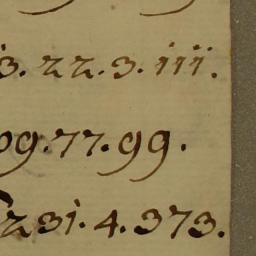 3. 22. 3. iii.
09. 77. 99.
231. 4. 373.